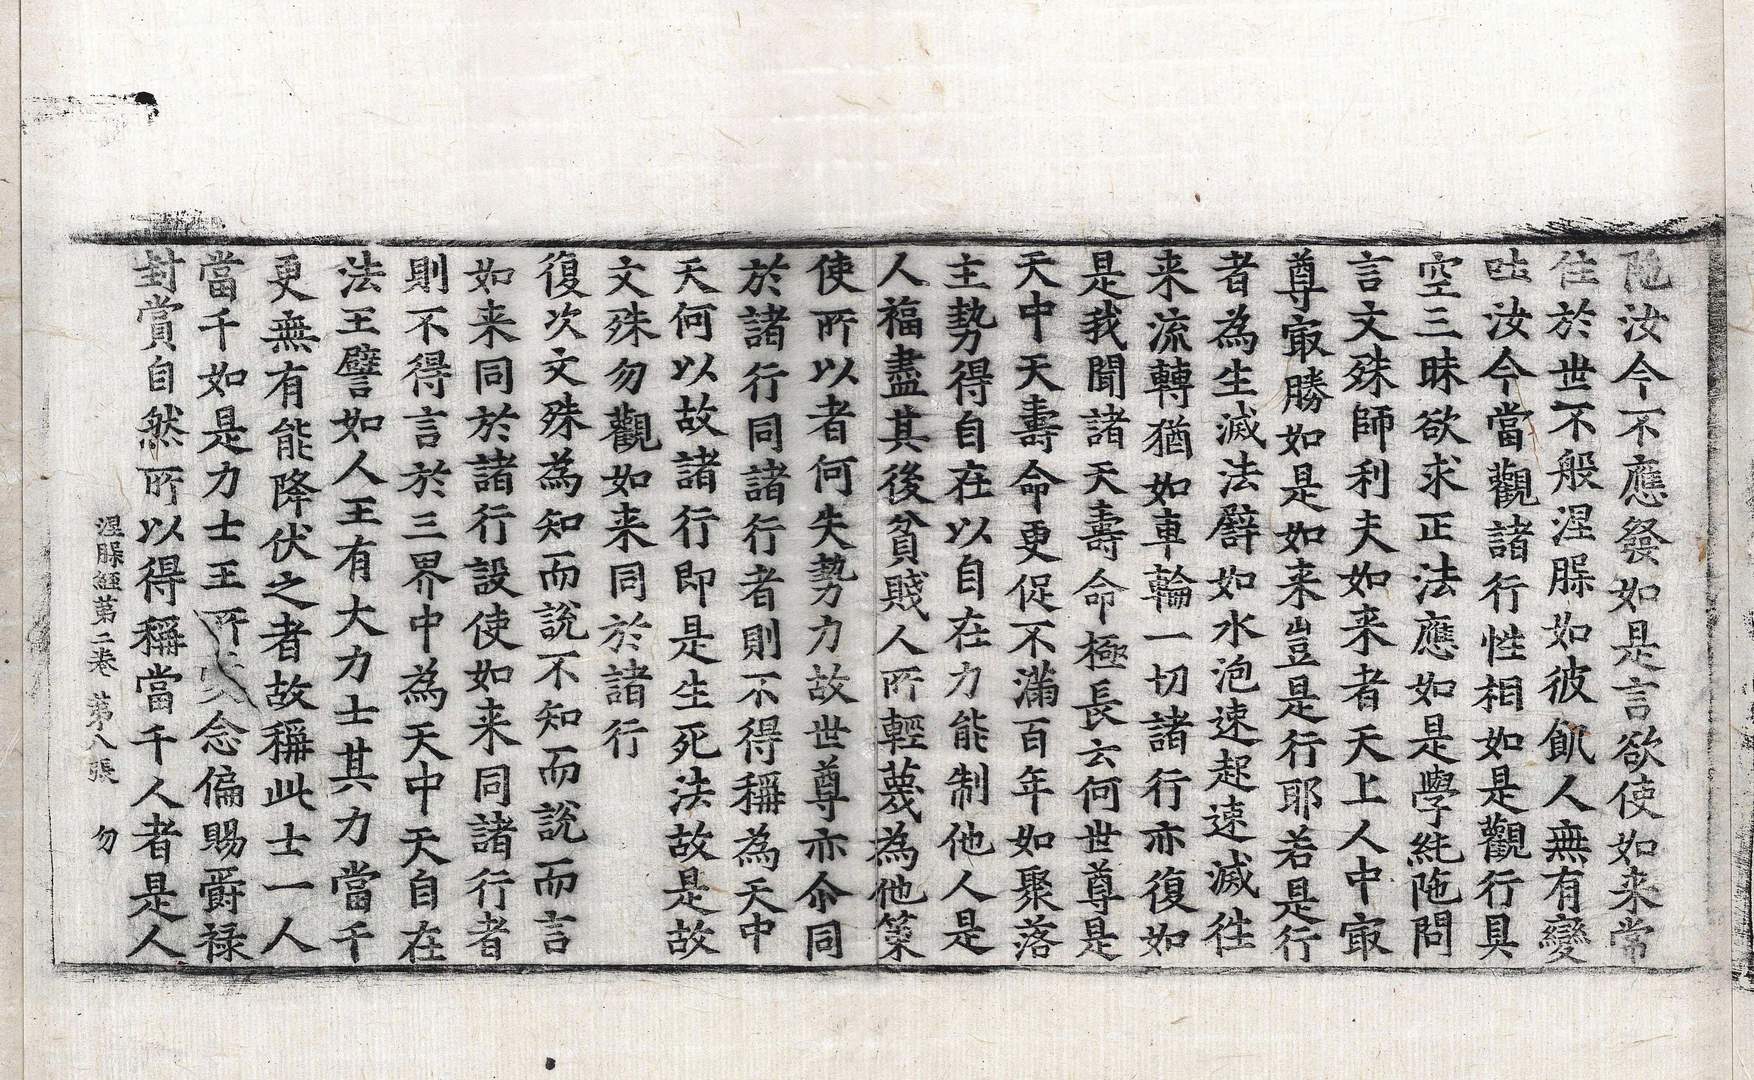 陁汝今不應發如是言欲使如来常
住於世不般涅槃如彼飢人無有變
吐汝今當觀諸行性相如是觀行具
空三昧欲求正法應如是學純陁問
言文殊師利夫如来者天上人中㝡
尊㝡勝如是如来豈是行耶若是行
者為生滅法譬如水泡速起速滅徃
来流轉猶如車輪一切諸行亦復如
是我聞諸天壽命極長云何世尊是
天中天壽命更促不滿百年如聚落
主勢得自在以自在力能制他人是
人福盡其後貧賤人所輕蔑為他策
使所以者何失勢力故世尊亦尒同
於諸行同諸行者則不得稱為天中
天何以故諸行即是生死法故是故
文殊勿觀如来同於諸行
復次文殊為知而說不知而說而言
如来同於諸行設使如来同諸行者
則不得言於三界中為天中天自在
法王譬如人王有大力士其力當千
更無有能降伏之者故稱此士一人
當千如是力士王所念偏賜爵禄
封賞自然所以得稱當千人者是人
涅槃經第二卷 第八張 勿